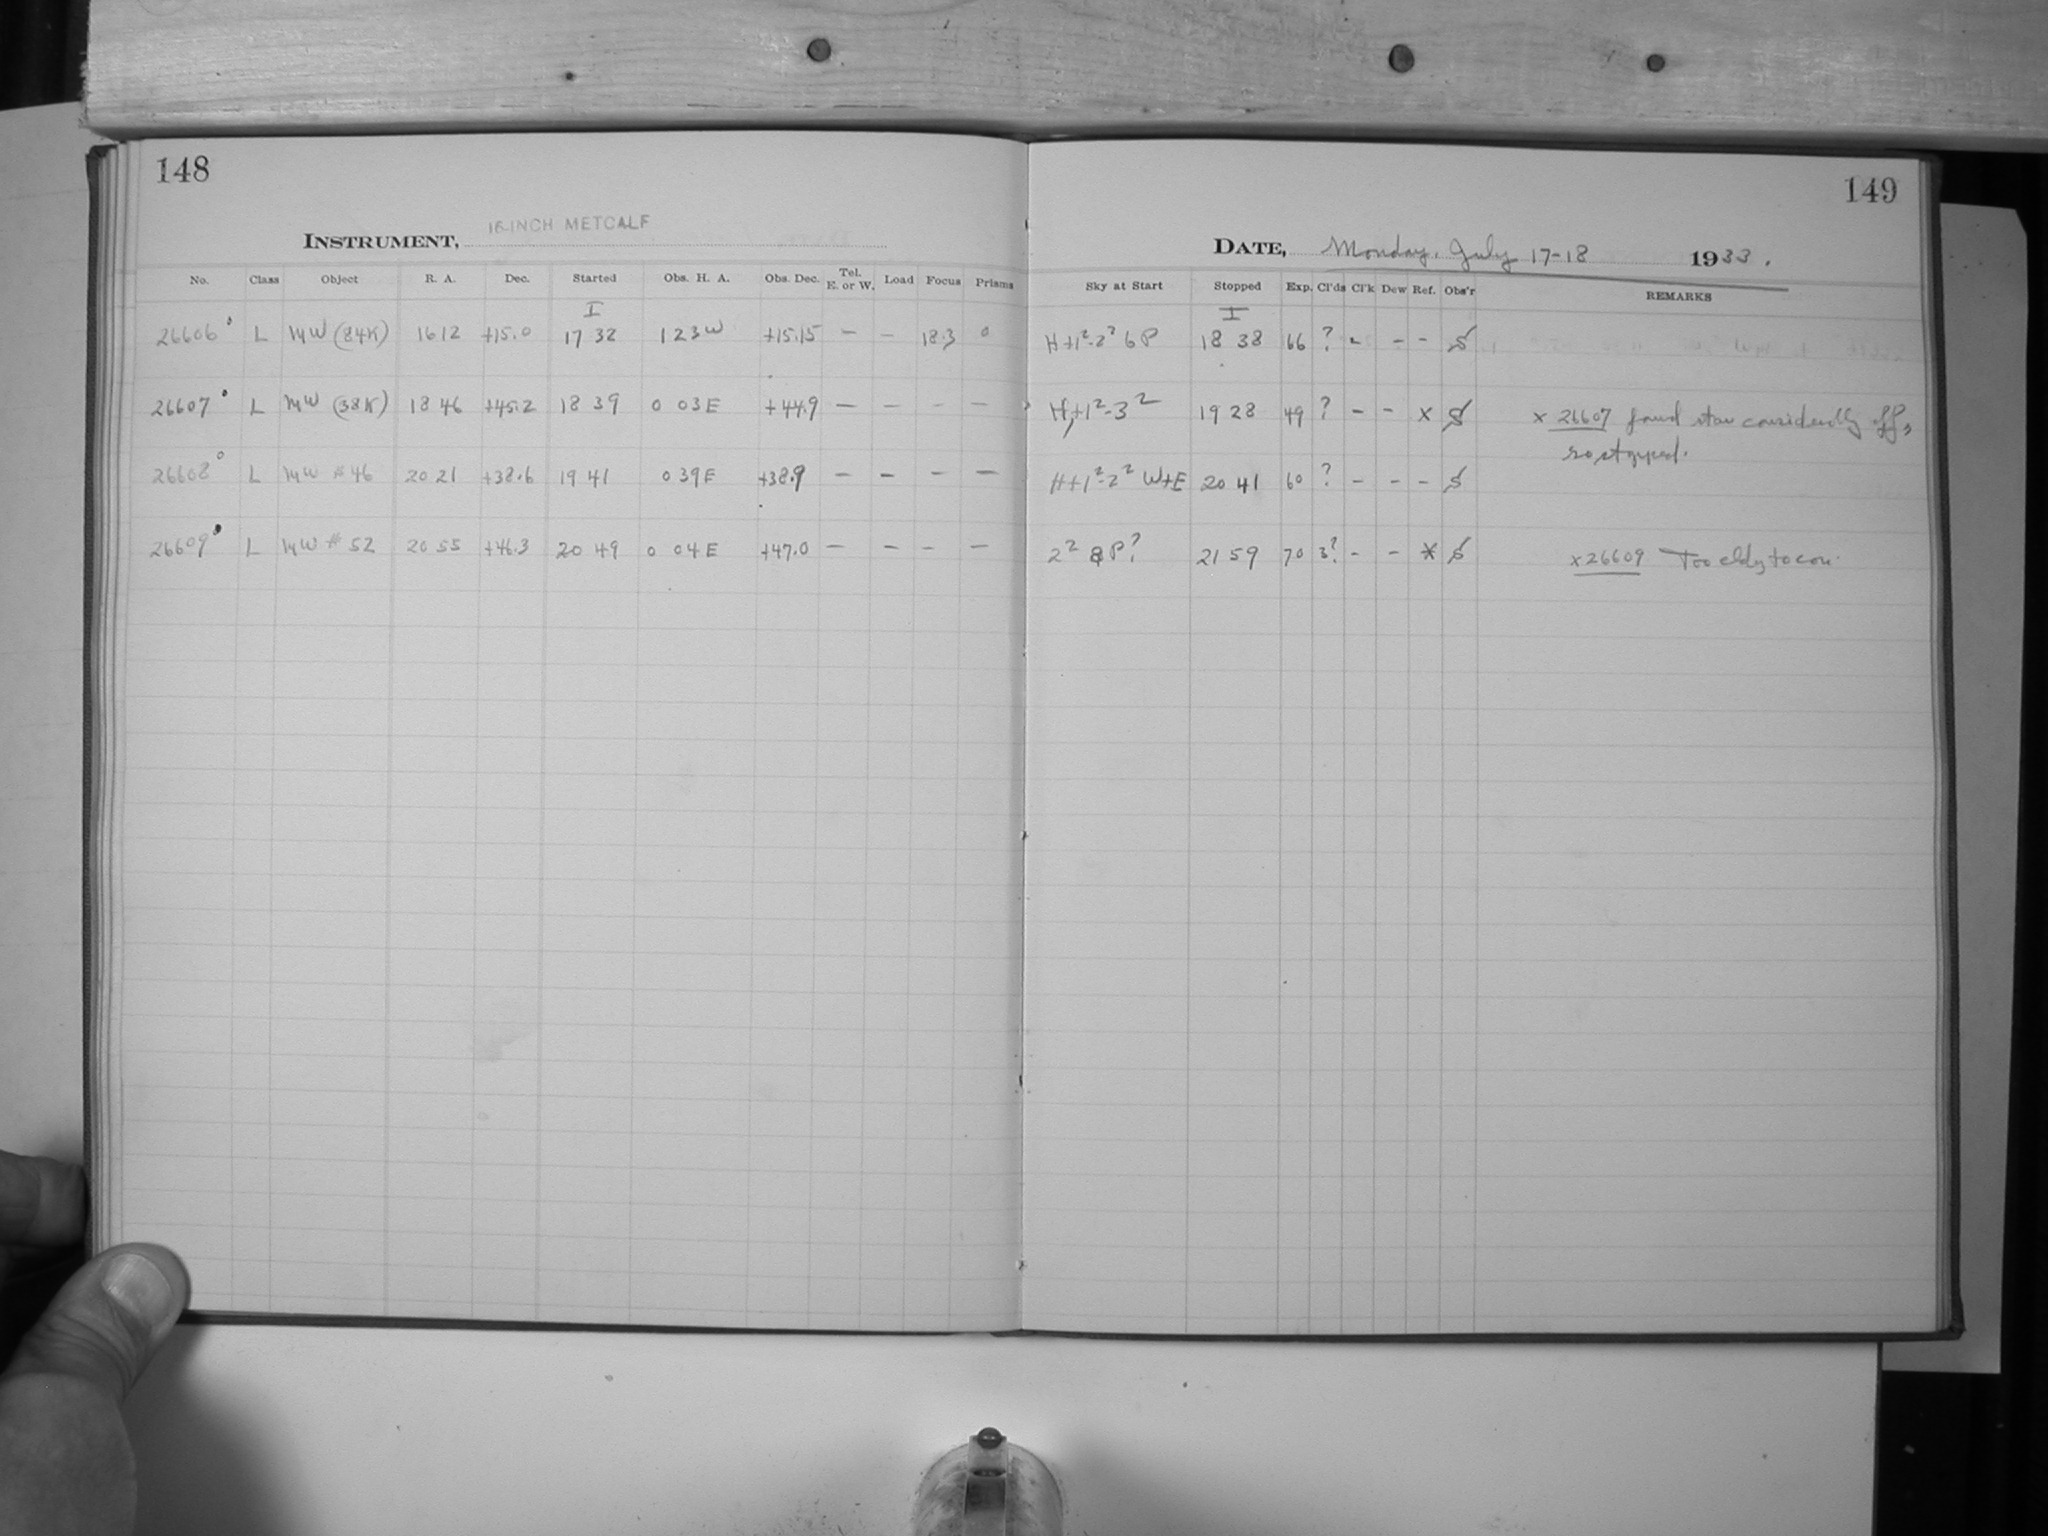 148
149
INSTRUMENT, 16-INCH METCALF
DATE, Monday, July 17-18 1933.
No. Class Object R. A. Dec. Started Obs. H. A. Obs. Dec. Tel. E. or W. Load Focus Prisms Sky at Start Stopped Exp. Cl'ds Cl'k Dew Ref. Obs'r REMARKS
I I
26606 L MW (84K) 16 12 +15.0 17 32 1 23 W +15.15 – – 18.3 0 H+1²-2² 6P 18 38 66 ? - – –
26607 L MW (38K) 18 46 +45.2 18 39 0 03 E +44.9 – – – – H,+1²-3² 19 28 49 ? – – x x 26607 found star considerably off,
so stopped.
26608 L MW #46 20 21 +38.6 19 41 0 39 E +38.9 – – – – H+1²-2² W+E 20 41 60 ? – – –
26609 L MW #52 20 55 +46.3 20 49 0 04 E +47.0 – – – – 2² P? 21 59 70 3? – – * x 26609 Too cldy to con.